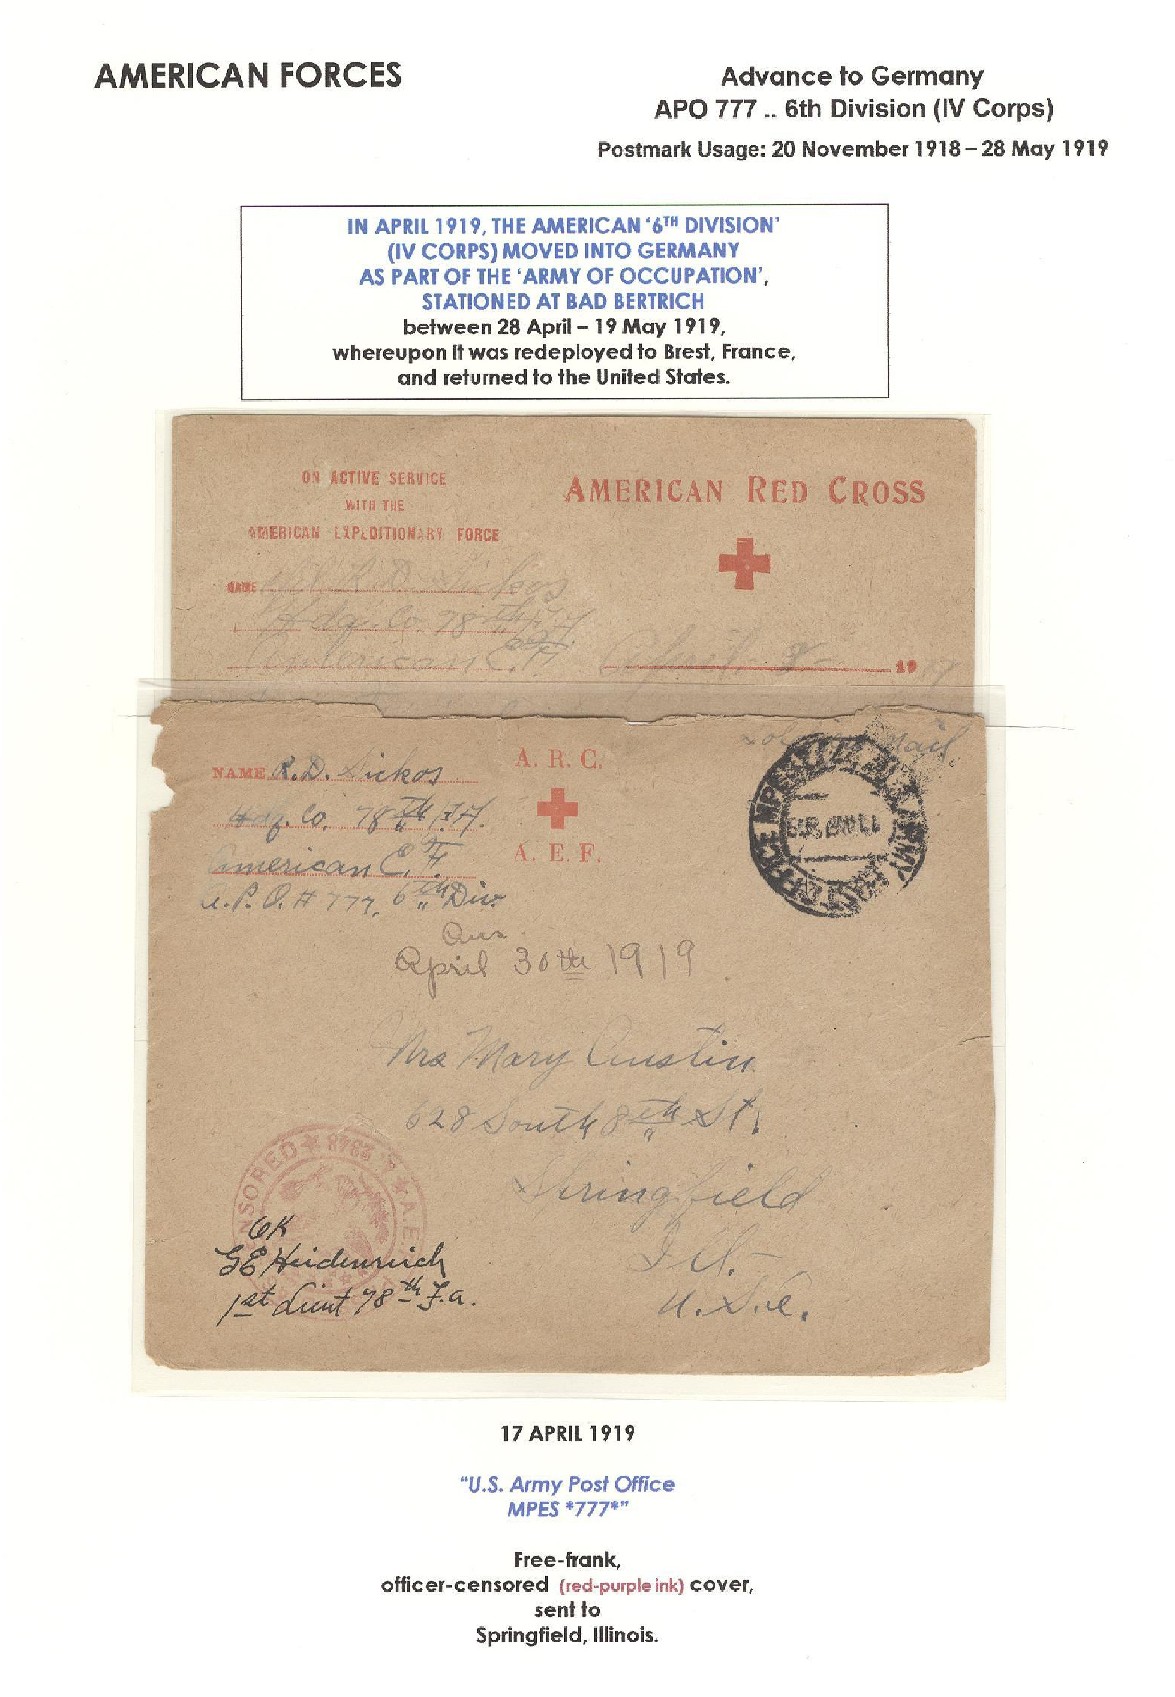 AMERICAN FORCES
Advance to Germany
APO 777 .. 6th Division (IV Corps)
Postmark Usage: 20 November 1918 – 28 May 1919
IN APRIL 1919, THE AMERICAN ‘6TH DIVISION’
(IV CORPS) MOVED INTO GERMANY
AS PART OF THE ‘ARMY OF OCCUPATION’,
STATIONED AT BAD BERTRICH
between 28 April – 19 May 1919,
whereupon it was redeployed to Brest, France,
and returned to the United States.
ON ACTIVE SERVICE
WITH THE
AMERICAN EXPEDITIONARY FORCE
AMERICAN RED CROSS
NAME R.D. Sickos
Hdq. Co. 78th F.A.
American E.F.
April 19
Mail.
NAME R.D. Sickos
Hdq. Co. 78th F.A.
American E.F.
A.P.O. # 777, 6th Div.
A. R. C.
A. E. F.
OFFICE MPES
Ans.
April 30th 1919
Mrs Mary Austin
628 South 8th St.
Springfield
Ill.
U.S.A.
CENSORED A.E.F.
OK
GE Heidenreich
1st Lieut 78th F.a.
17 APRIL 1919
“U.S. Army Post Office
MPES *777*”
Free-frank,
officer-censored (red-purple ink) cover,
sent to
Springfield, Illinois.